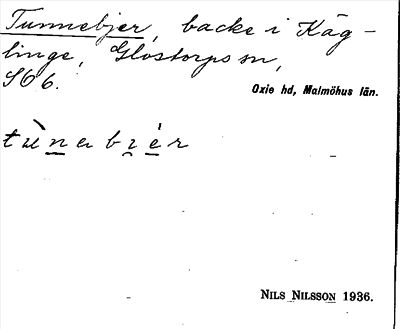 Tunnebjer, backe i Käg-
linge, Glostorps sn,
SO 6.
Oxie hd, Malmöhus län.
tùnabiér
NILS NILSSON 1936.